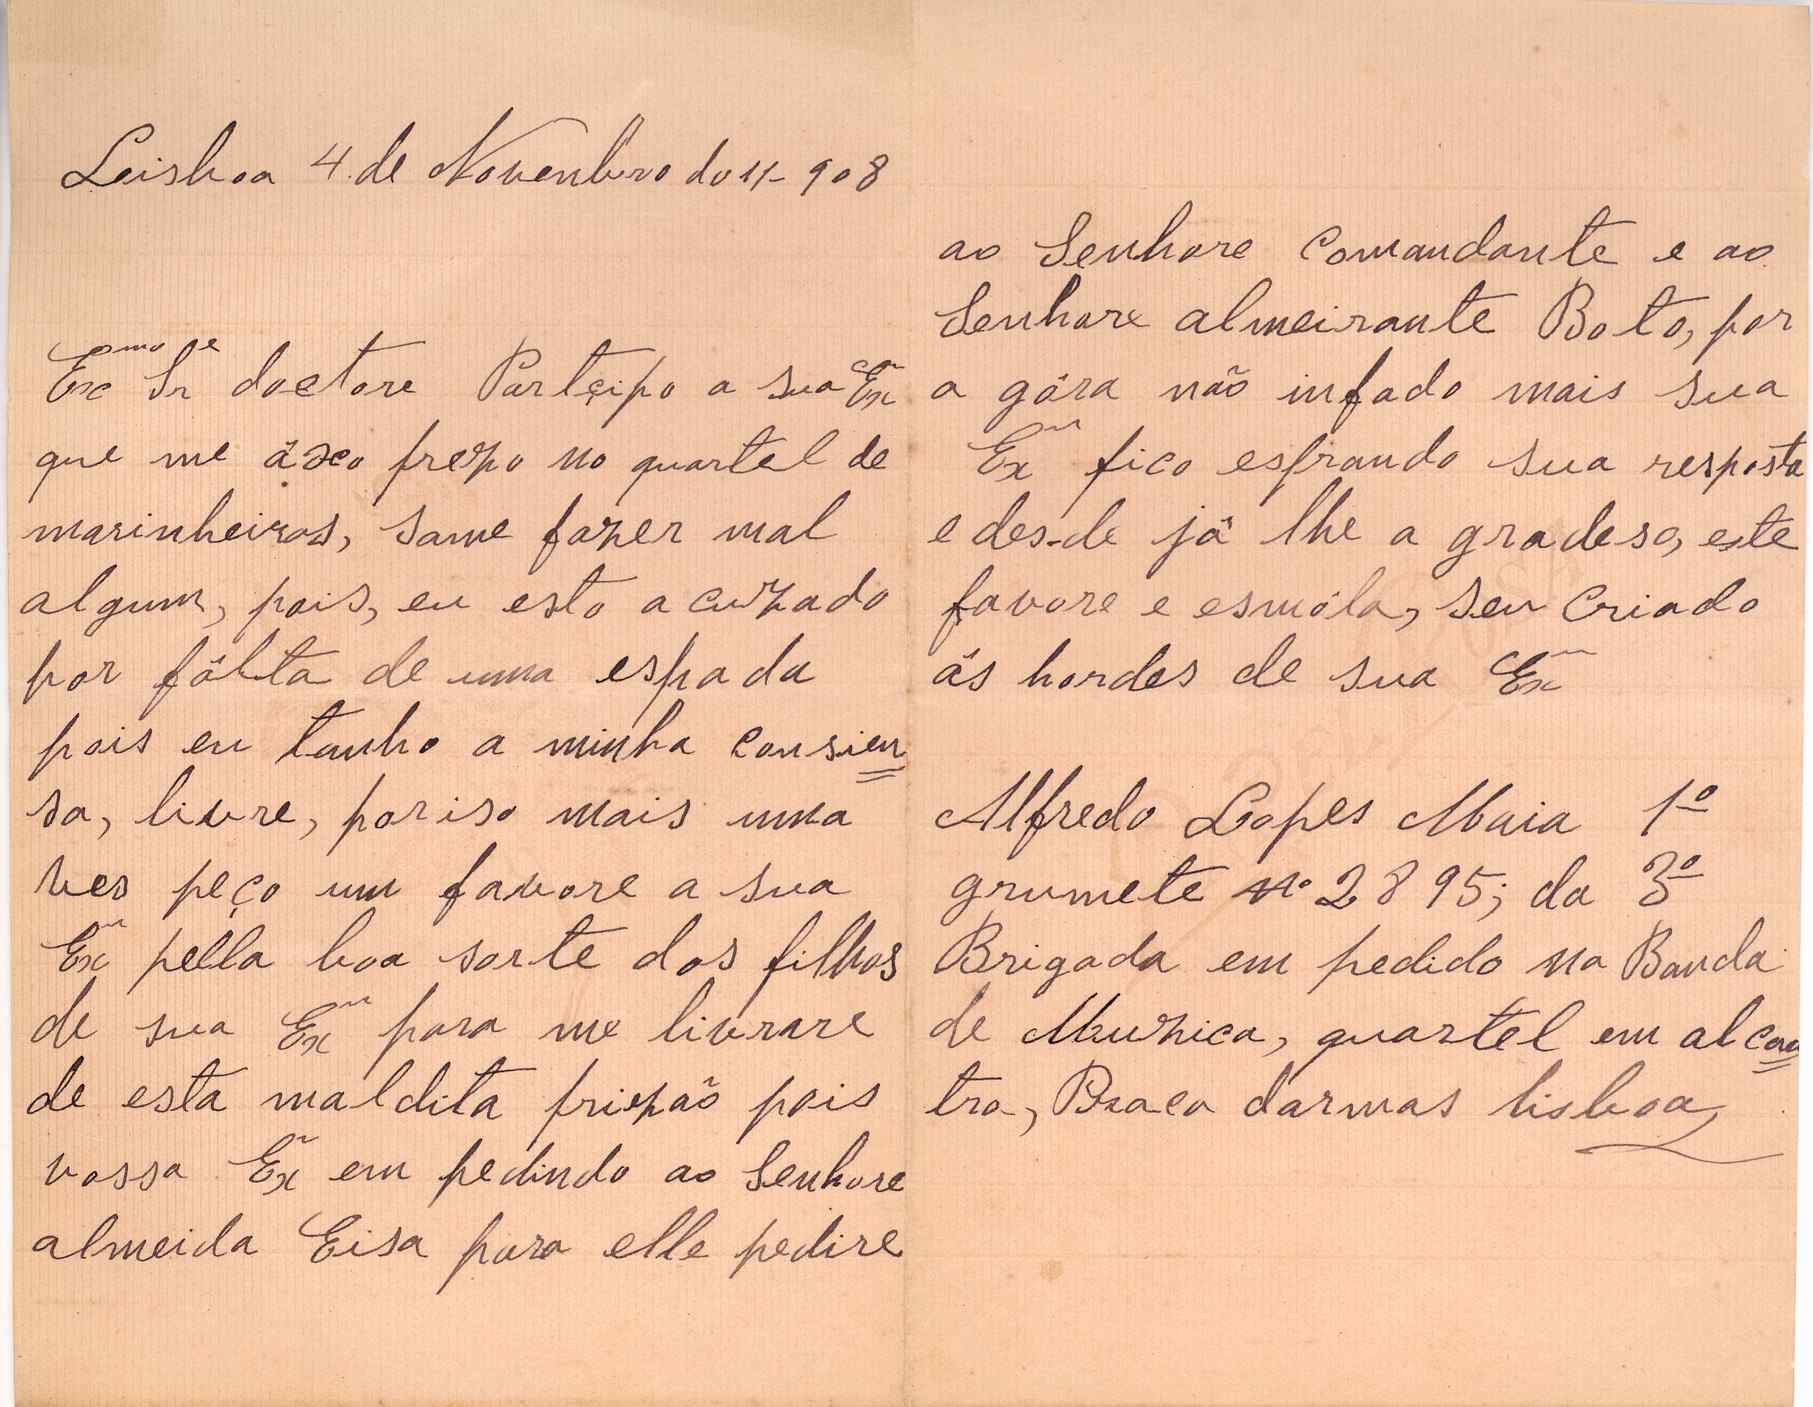 Leisboa 4 de Novenbro do 11- 908
Exmo Snre doctore Partçipo a sua Exª
que me áxo prezo no quartel de
marinheiros, same fazer mal
algum, pois, eu esto a cuzado
por fálta de uma espada
pois eu tanho a minha consien
sa, livre, por iso mais uma
ves peço um favore a sua
Exª pella boa sorte dos filhos
de sua Exª para me livrare
de esta maldita prizão pois
vossa Exª em pedindo ao Senhore
almeida Eisa para elle pedire
ao Senhore Comandante e ao
Senhore almeirante Boto, por
a góra não infado mais sua
Exª fico esprando sua resposta
e des-de já lhe a gradeso, este
favore e esmóla, seu Criado
ás hordes de sua Exª
Alfredo Lopes Maia 1º
grumete nº 2895; da 3ª
Brigada em pedido na Banda
de Muzica, quartel em alcan
tra, Praca darmas lisboa